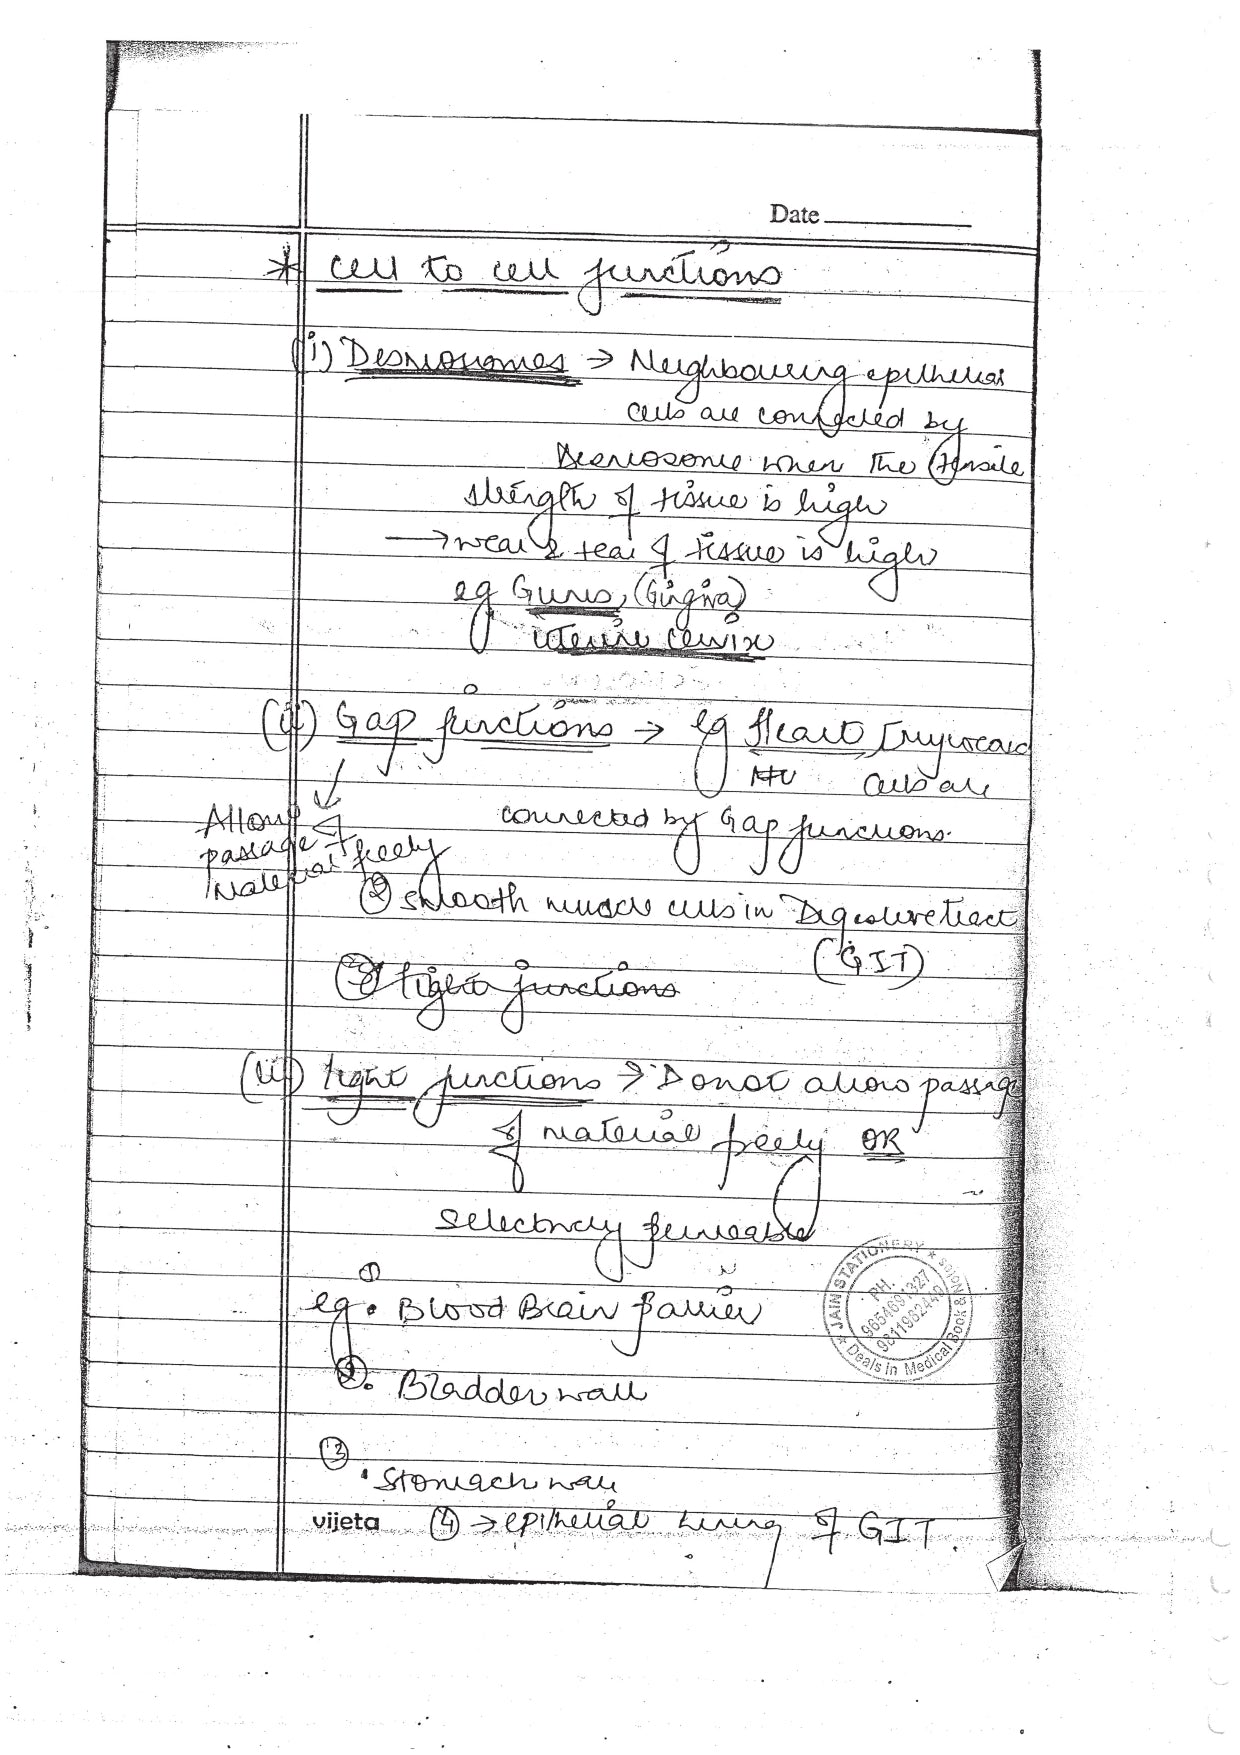 Date
* Cell to cell junctions
(i) Desmosomes → Neighbouring epithelial
cells are connected by
Desmosome when the tensile
strength of tissue is high
→ wear & tear of tissue is high
eg Gums, (Gingiva)
uterine cervix
(ii) Gap junctions → eg Heart [myocard
cells are
connected by Gap junctions.
Allows
passage of
Material freely
② smooth muscle cells in Digestive tract
(GIT)
tight junctions
(iii) tight junctions → Do not allow passage
of material freely OR
selectively permeable
①
eg. Blood Brain barrier
②. Bladder wall
③
• Stomach wall
vijeta ④ → epithelial lining of GIT.
JAIN STATIONERY ★
PH.
9654691327
9811962440
★ Deals in Medical Book &